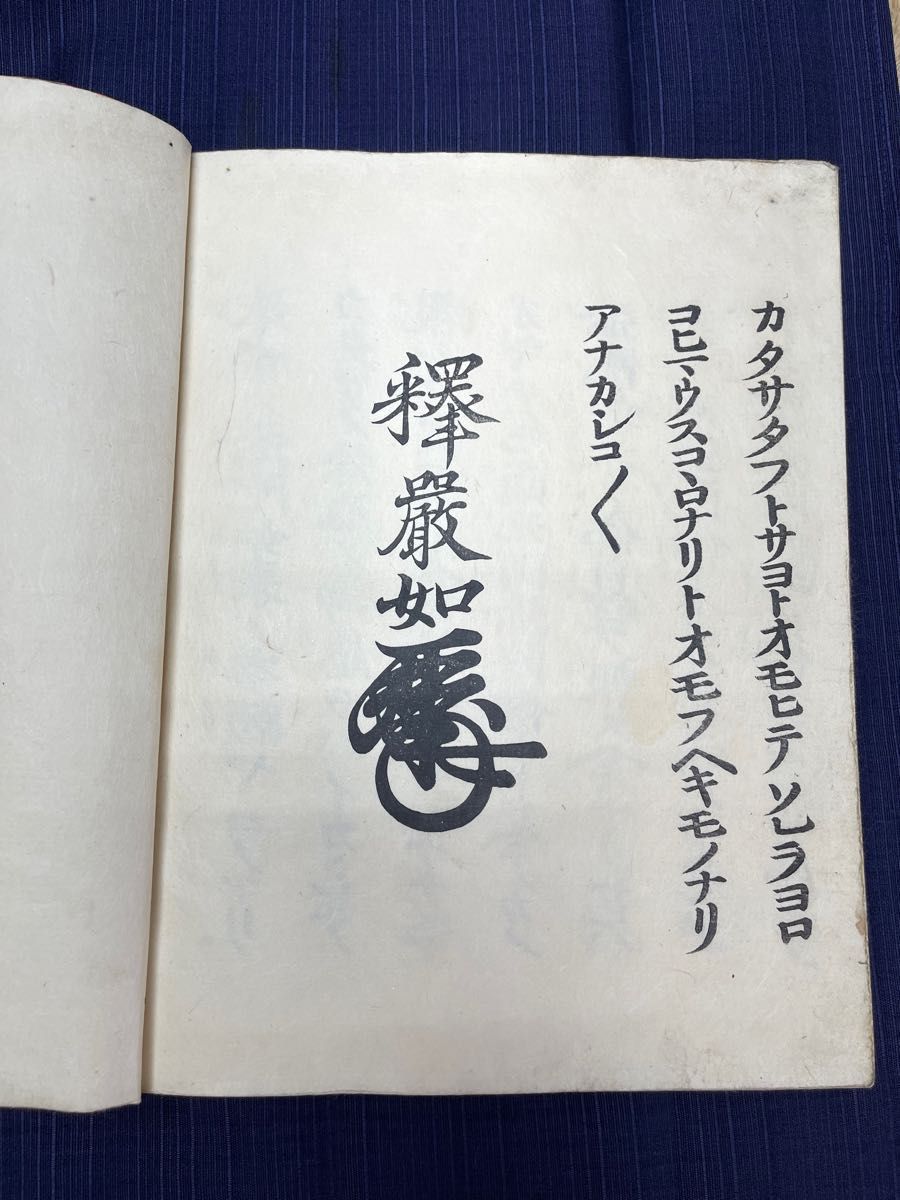 カタサタフトサヨトオモヒテソレヲヨロ
コヒマウスコヽロナリトオモフヘキモノナリ
アナカシコ〳〵
釋嚴如